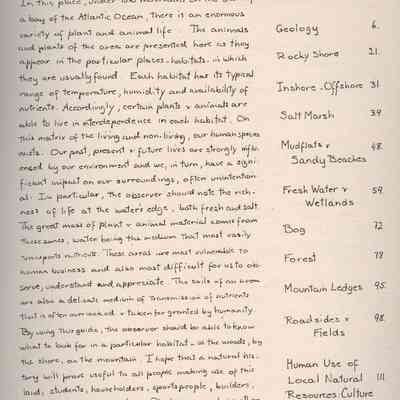 In this place,
a bay of the Atlantic Ocean, there is an enormous
variety of plant and animal life. The animals
and plants of the area are presented here as they
appear in the particular places-habitats-in which
they are usually found. Each habitat has its typical
range of temperature, humidity and availability of
nutrients. Accordingly, certain plants & animals are
able to live in interdependence in each habitat. On
this matrix of the living and non-living, our human species
exists. Our past, present & future lives are strongly influ-
enced by our environment and we, in turn, have a signi-
ficant impact on our surroundings, often unintention-
al. In particular, the observer should note the rich-
ness of life at the water's edge, both fresh and salt.
The great mass of plant & animal material comes from
these areas, water being the medium that most easily
transports nutrients. These areas are most vulnerable to
human business and also most difficult for us to ob-
serve, understand and appreciate. The soils of an area
are also a delicate medium of transmission of nutrients
that is often overlooked & taken for granted by humanity.
By using this guide, the observer should be able to know
what to look for in a particular habitat-in the woods, by
the shore, on the mountain. I hope that a natural his-
tory will prove useful to all people making use of this
land; students, householders, sportspeople, builders,
Geology 6.
Rocky Shore 21.
Inshore-Offshore 31
Salt Marsh 39
Mudflats &
Sandy Beaches 48.
Fresh Water &
Wetlands 59.
Bog 72
Forest 78
Mountain Ledges 95.
Roadsides &
Fields 98.
Human Use of
Local Natural
Resources: Culture 111